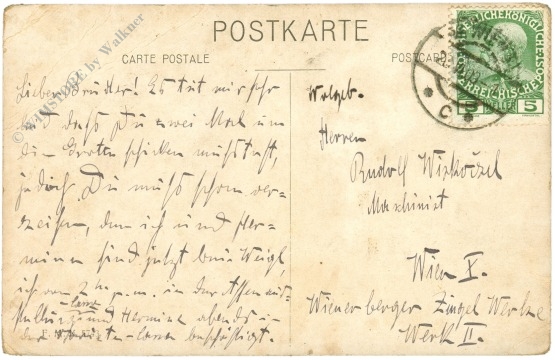 POSTKARTE
CARTE POSTALE
POSTCARD
© WINSTORE by Walkner
KAISERLICHE KÖNIGLICHE
ÖSTERREICHISCHE
5 HELLER 5
* C *
Lieber Bruder! Es tut mir sehr
leid daß Du zwei Mal um
die Karten schicken mußtest,
jedoch Du mußt schon ver=
zeihen, denn ich und Her=
mine sind jetzt beim Weigl,
ich von 2 h p.m. in der
und Hermine abends in
beschäftigt.
Wolgeb.
Herren
Rudolf
Maschinist
Wien X.
Wienerberger Ziegel Werke
Werk II.